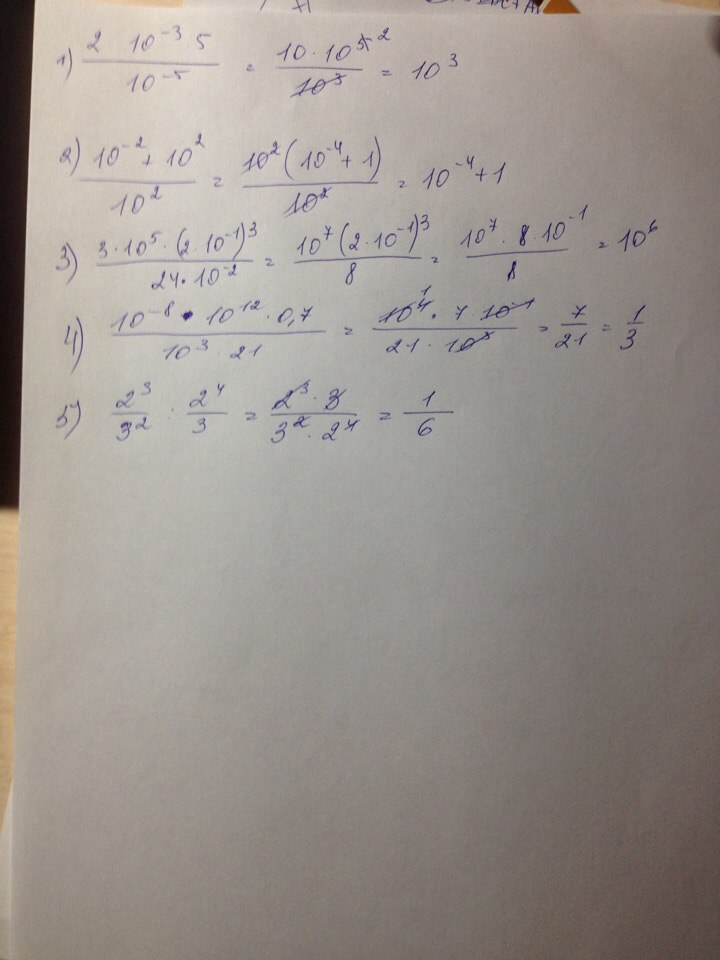 1) \frac{2 \quad 10^{-3} \cdot 5}{10^{-5}} = \frac{10 \cdot 10^{5 2}}{10^{3}} = 10^{3}
2) \frac{10^{-2} + 10^{2}}{10^{2}} = \frac{10^{2} (10^{-4} + 1)}{10^{2}} = 10^{-4} + 1
3) \frac{3 \cdot 10^{5} \cdot (2 \cdot 10^{-1})^{3}}{24 \cdot 10^{-2}} = \frac{10^{7} (2 \cdot 10^{-1})^{3}}{8} = \frac{10^{7} \cdot 8 \cdot 10^{-1}}{8} = 10^{6}
4) \frac{10^{-8} \cdot 10^{12} \cdot 0,7}{10^{3} \cdot 21} = \frac{10^{4} \cdot 7 \cdot 10^{-1}}{21 \cdot 10^{3}} = \frac{7}{21} = \frac{1}{3}
5) \frac{2^{3}}{3^{2}} : \frac{2^{4}}{3} = \frac{2^{3} \cdot 3}{3^{2} \cdot 2^{4}} = \frac{1}{6}